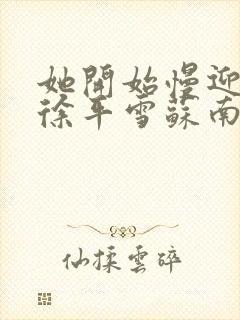 她開始慢迎
徐平雪蘇南
仙揉雲碎